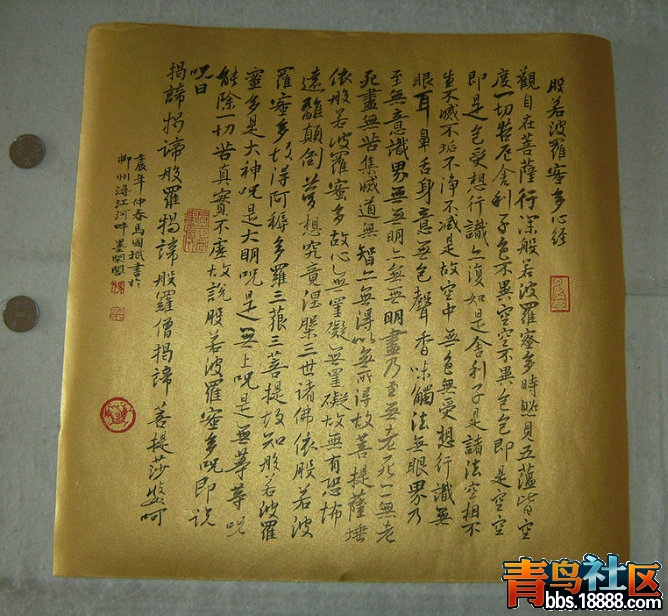 般若波羅蜜多心經
觀自在菩薩行深般若波羅蜜多時照見五蘊皆空
度一切苦厄舍利子色不異空空不異色色即是空空
即是色受想行識亦復如是舍利子是諸法空相不
生不滅不垢不淨不減是故空中無色無受想行識無
眼耳鼻舌身意無色聲香味觸法無眼界乃
至無意識界無無明亦無無明盡乃至無老死亦無老
死盡無苦集滅道無智亦無得以無所得故菩提薩埵
依般若波羅蜜多故心無罣礙無罣礙故無有恐怖
遠離顛倒夢想究竟涅槃三世諸佛依般若波
羅蜜多故得阿耨多羅三藐三菩提故知般若波羅
蜜多是大神咒是大明咒是無上咒是無等等咒
能除一切苦真實不虛故說般若波羅蜜多咒即說
咒曰
揭諦揭諦般羅揭諦般羅僧揭諦菩提莎婆呵
辰年仲春馬國書於
柳州潯江河畔墨閣
青鸟社区
bbs.18888.com